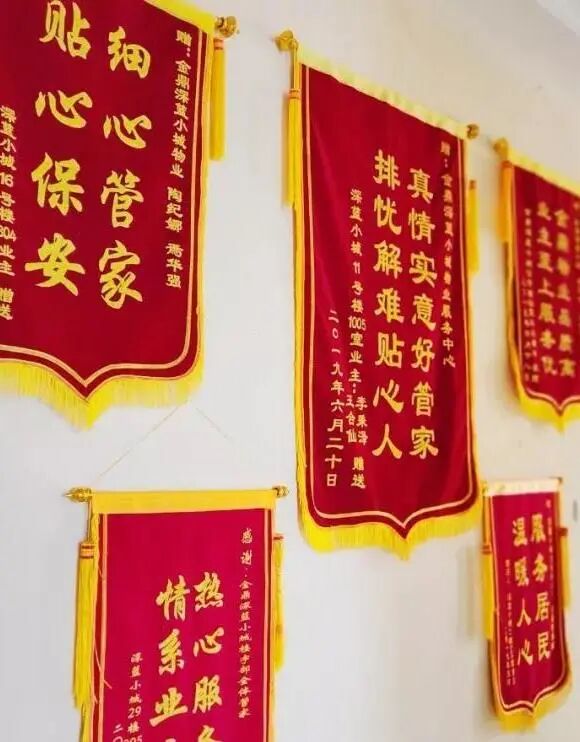 赠：金鼎深蓝小城物业 陶纪娜 焉华强
细心管家
贴心保安
深蓝小城16号楼304业主 赠送
赠：金鼎深蓝小城物业服务中心
真情实意好管家
排忧解难贴心人
深蓝小城11号楼1005室业主：李秉泽 王合仙 赠送
二〇一九年六月二十日
金鼎物业品质高
业主至上服务优
感谢：金鼎深蓝小城楼宇部全体管家
热心服务
情系业
深蓝小城29楼
服务居民
温暖人心